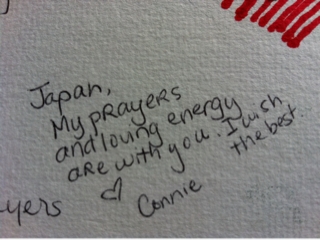 Japan,
My prayers
and loving energy
are with you. I wish
the best
♡ Connie
yers